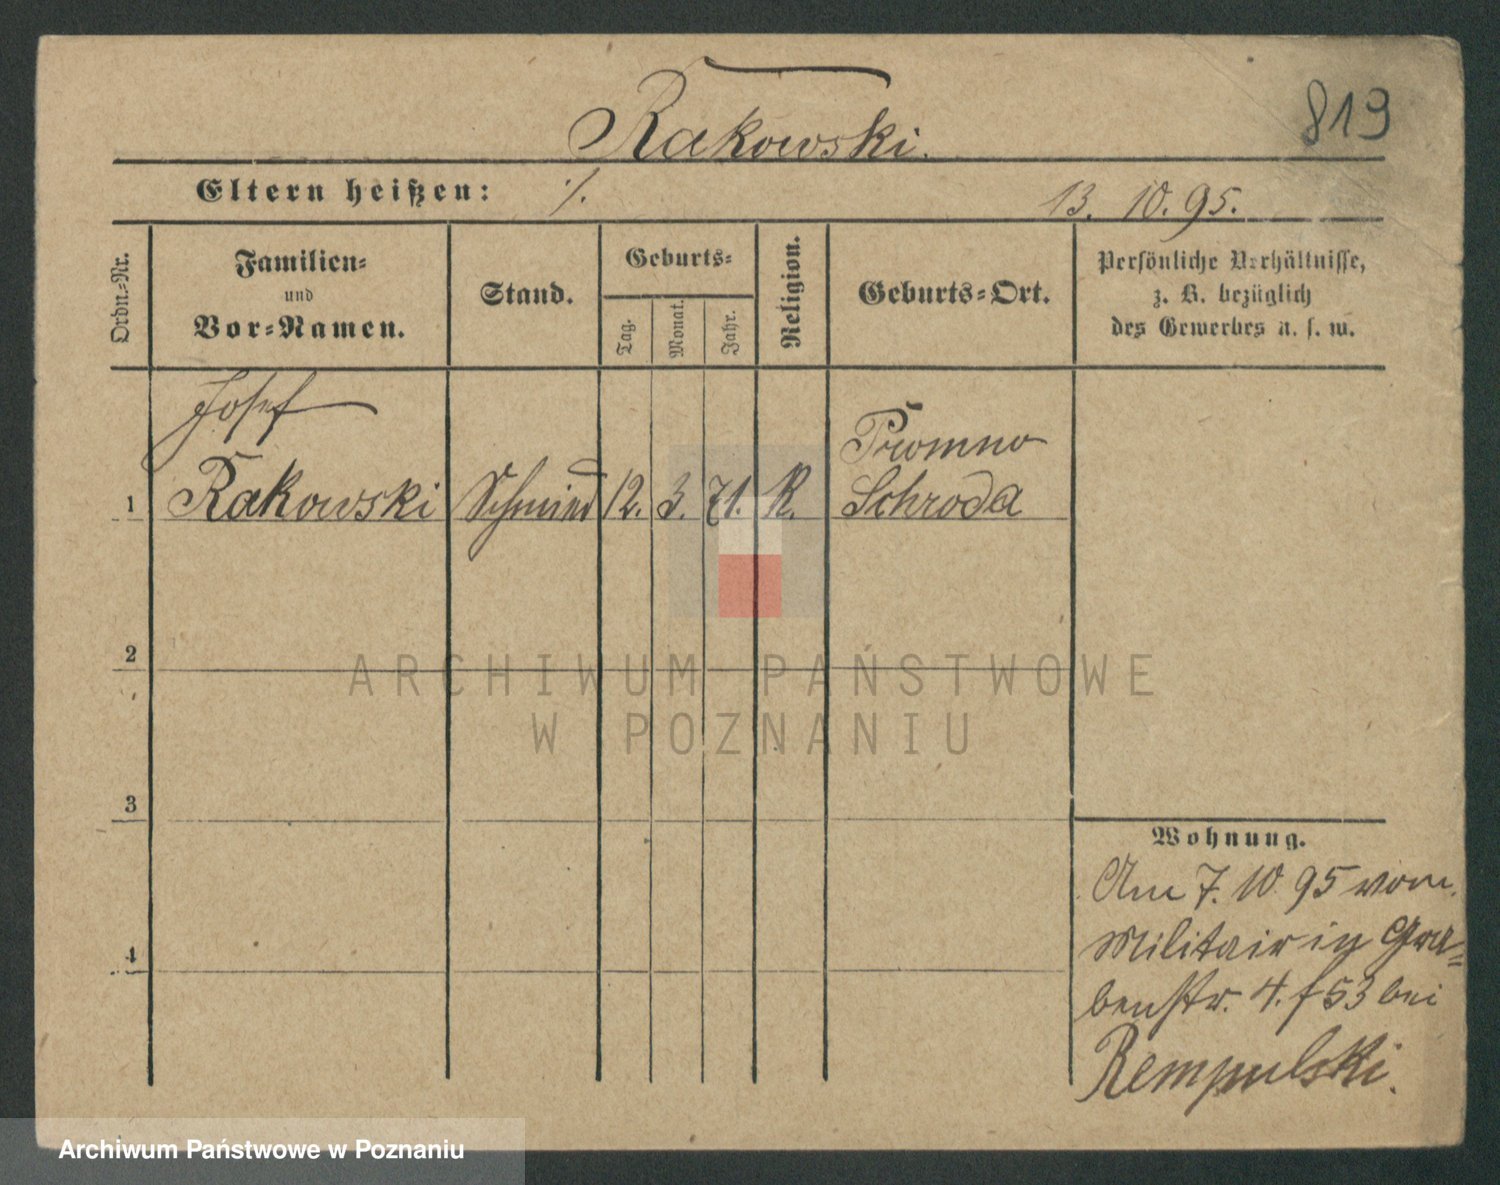 819
Rakowski.
Eltern heißen: ./. 13. 10. 95.
Ordn.-Nr.
Familien-
und
Vor-Namen.
Stand.
Geburts-
Tag.
Monat.
Jahr.
Religion.
Geburts-Ort.
Persönliche Verhältnisse,
z. B. bezüglich
des Gewerbes u. s. w.
Josef
Promno
1 Rakowski Schmied 12. 3. 71. K. Schroda
2
ARCHIWUM PAŃSTWOWE
W POZNANIU
3
Wohnung.
Am 7. 10 95 vom
Militair in Gra-
benstr. 4. f 53 bei
4
Archiwum Państwowe w Poznaniu